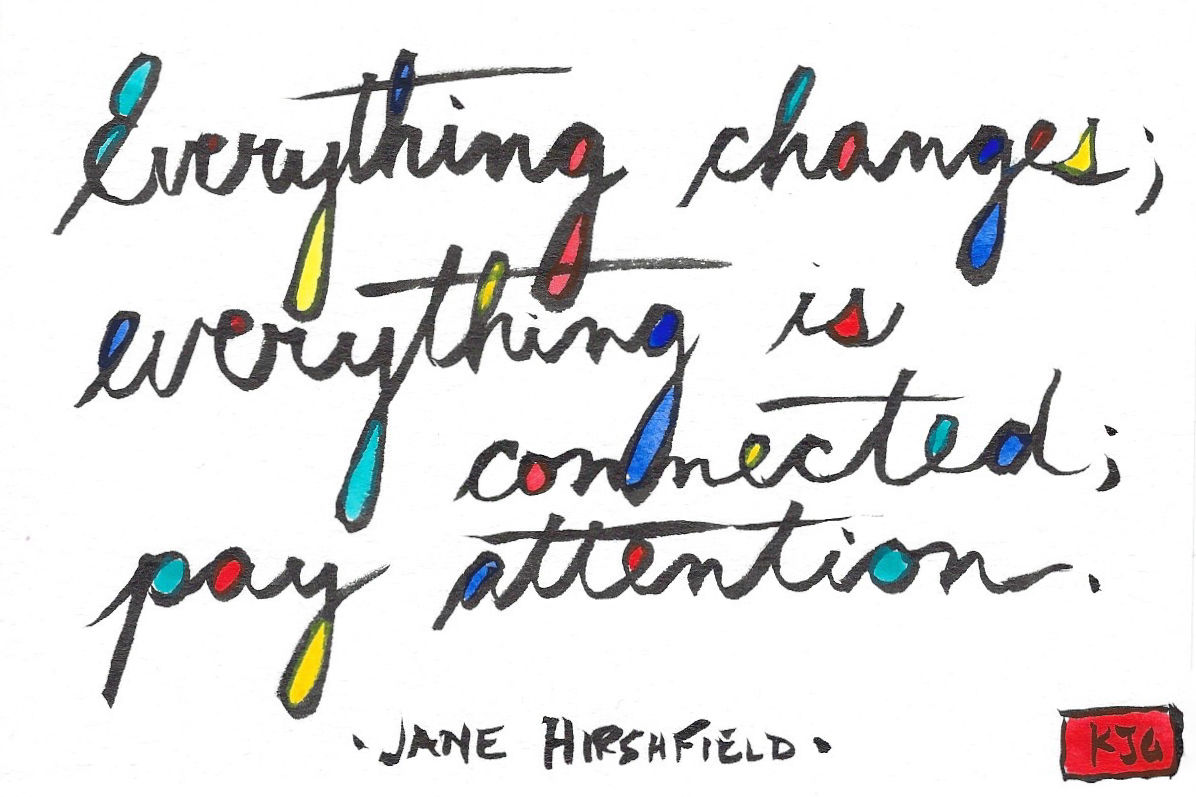 Everything changes;
everything is
connected;
pay attention.
· JANE HIRSHFIELD ·
KJG